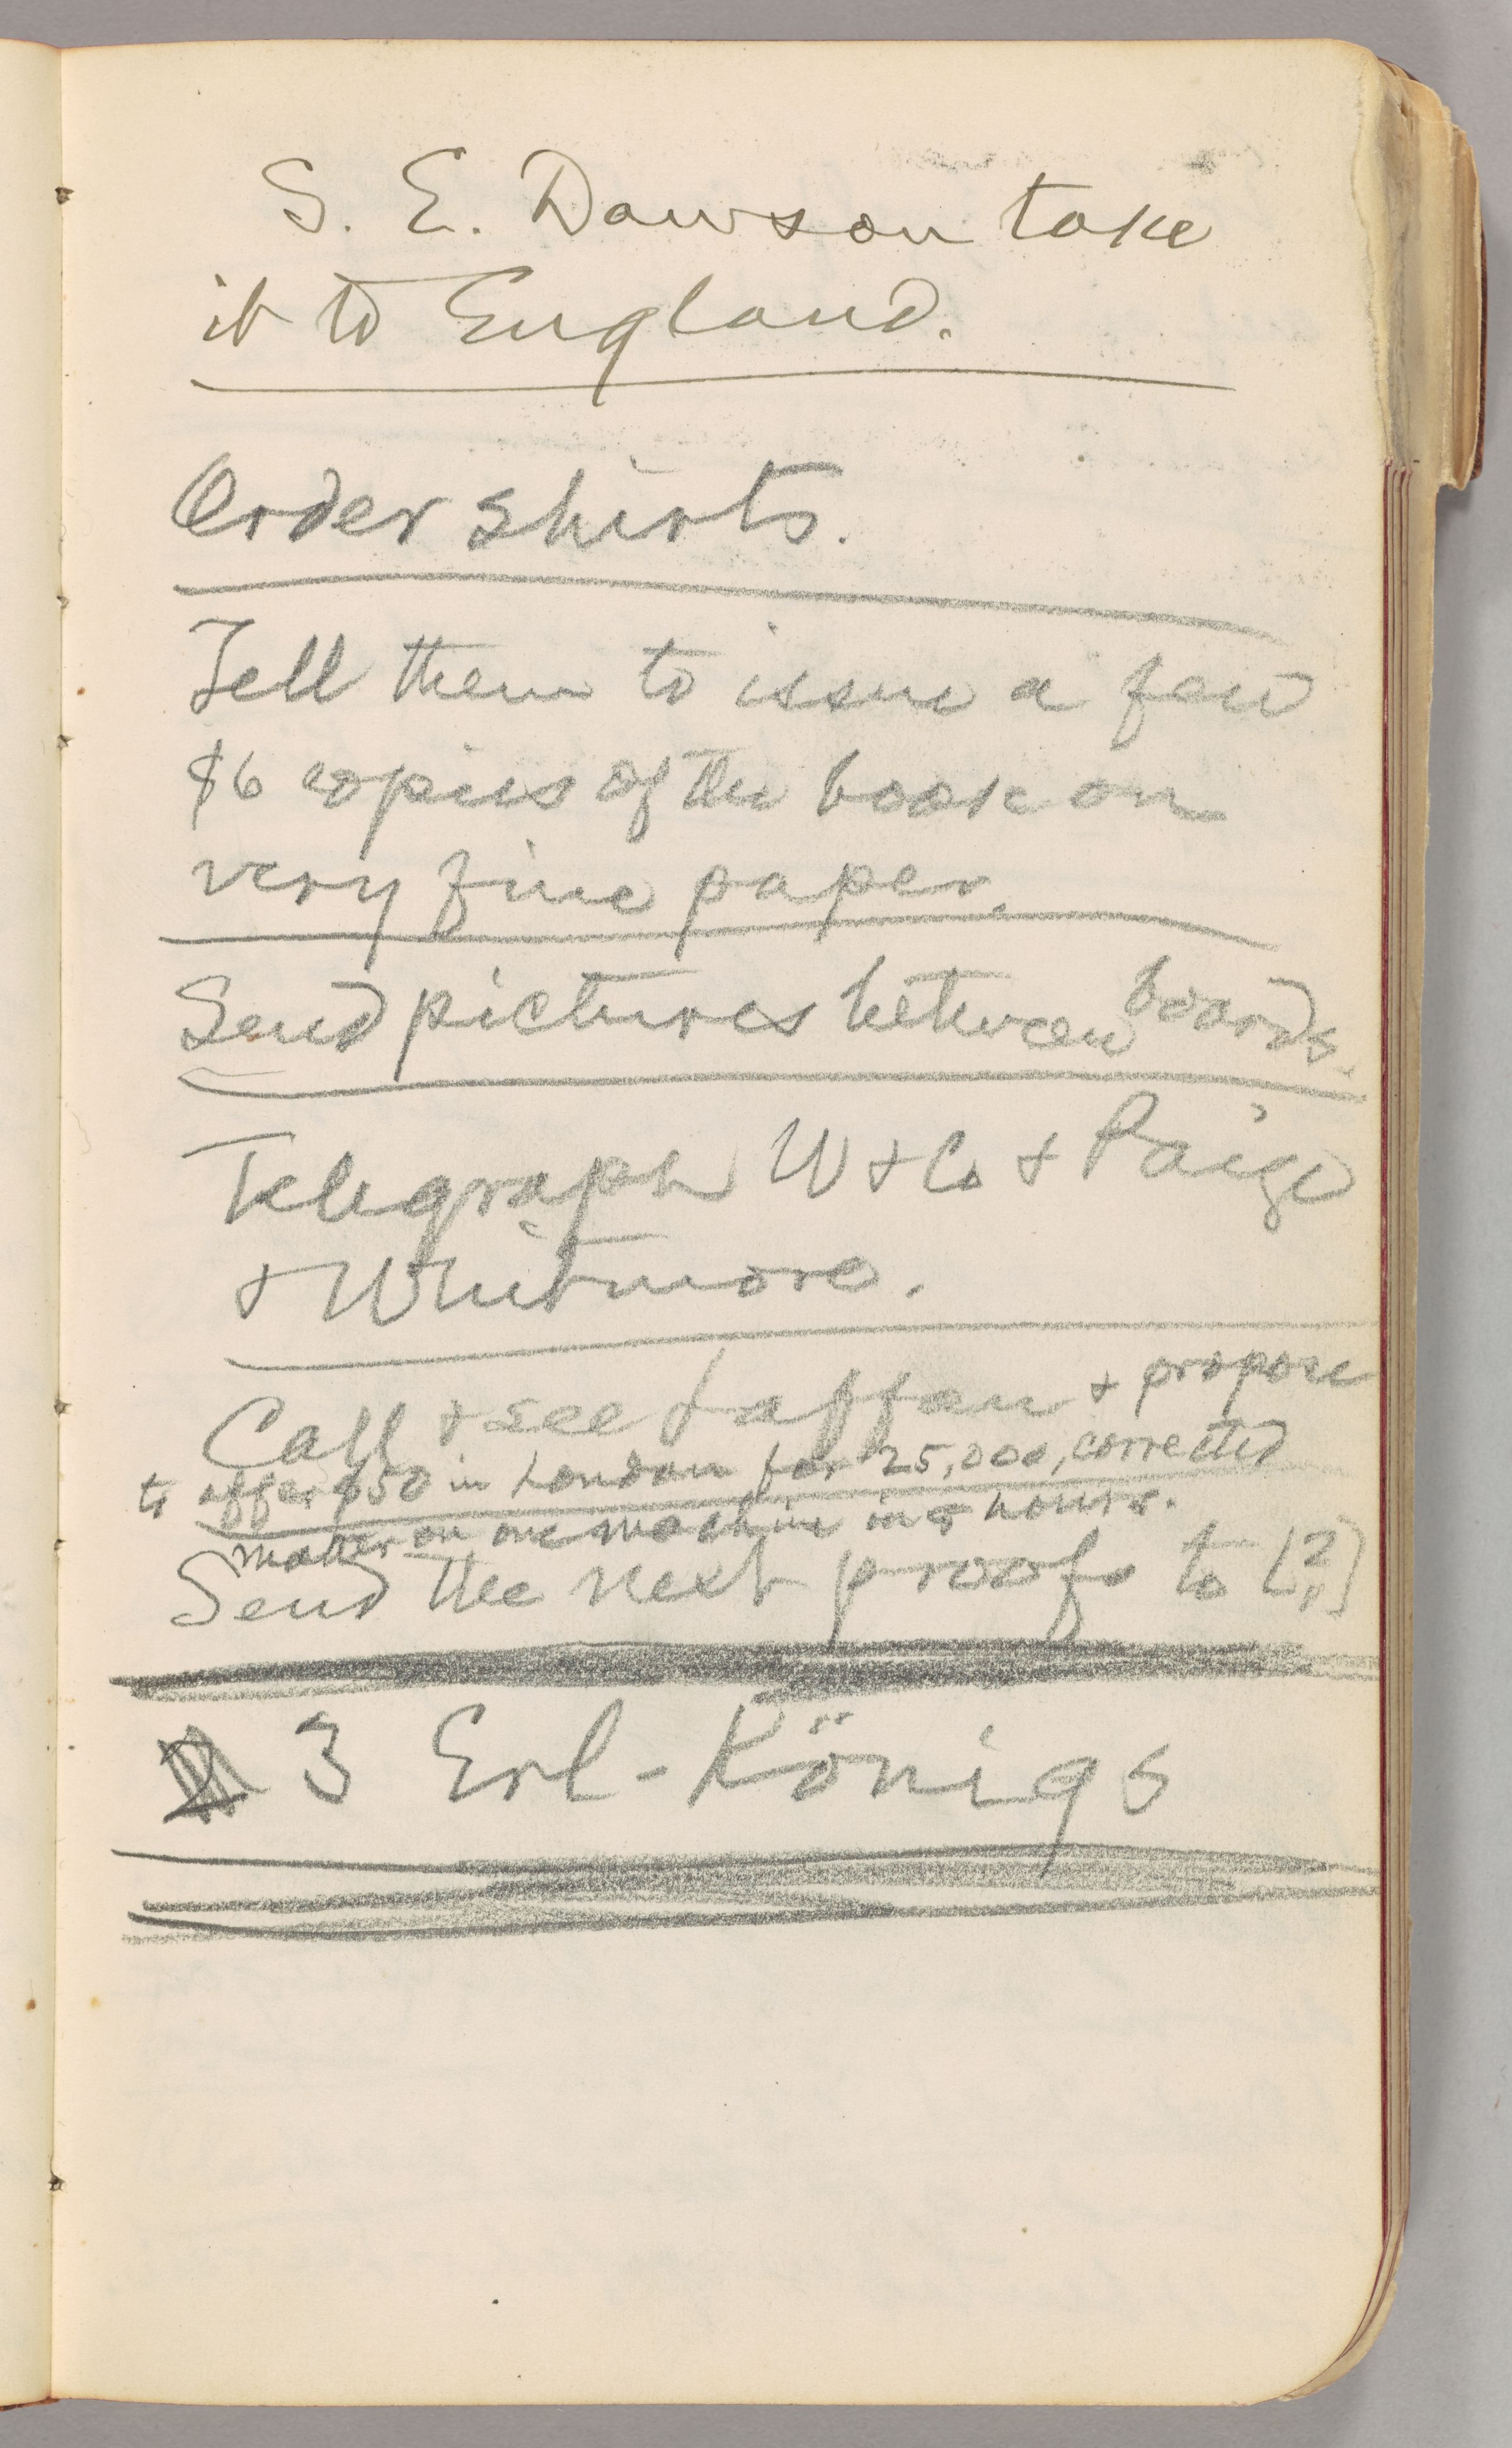 S. E. Dawson take
it to England.
Order shirts.
Tell them to issue a few
$6 copies of the book on
very fine paper.
Send pictures between boards.
Telegraph W & Co & Paige
& Whitmore.
Call & see Laffan & propose
to offer $50 in London for 25,000, corrected
matter on one machine in 5 hours.
Send the next proofs to [?]
3 Erl-Königs